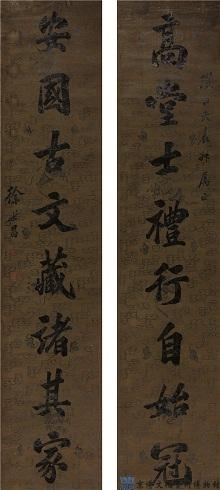 高堂士禮行自始冠
安國古文藏諸其家
徐世昌